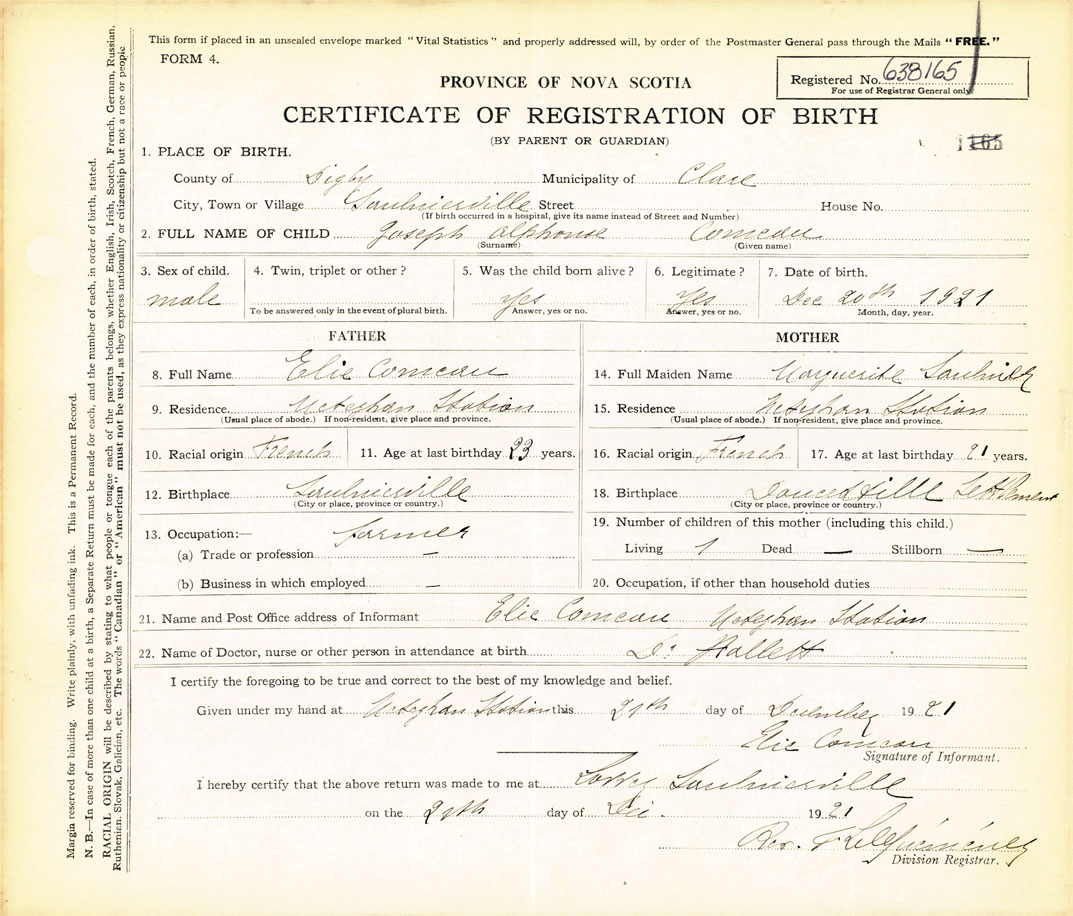 This form if placed in an unsealed envelope marked "Vital Statistics" and properly addressed will, by order of the Postmaster General pass through the Mails "FREE."
FORM 4.
PROVINCE OF NOVA SCOTIA
Registered No. 638165
For use of Registrar General only
CERTIFICATE OF REGISTRATION OF BIRTH
(BY PARENT OR GUARDIAN)
1165
1. PLACE OF BIRTH.
County of Digby Municipality of Clare
City, Town or Village Saulnierville Street House No.
(If birth occurred in a hospital, give its name instead of Street and Number)
2. FULL NAME OF CHILD Joseph Alphonse Comeau
(Surname) (Given name)
3. Sex of child. 4. Twin, triplet or other? 5. Was the child born alive? 6. Legitimate? 7. Date of birth.
male Yes Yes Dec 20th 1921
To be answered only in the event of plural birth. Answer, yes or no. Answer, yes or no. Month, day, year.
FATHER
8. Full Name Elie Comeau
9. Residence. Meteghan Station
(Usual place of abode.) If non-resident, give place and province.
10. Racial origin French 11. Age at last birthday 23 years.
12. Birthplace Saulnierville
(City or place, province or country.)
13. Occupation:— farmer
(a) Trade or profession —
(b) Business in which employed —
MOTHER
14. Full Maiden Name Marguerite Saulnier
15. Residence Meteghan Station
(Usual place of abode.) If non-resident, give place and province.
16. Racial origin French 17. Age at last birthday 21 years.
18. Birthplace Settlement
(City or place, province or country.)
19. Number of children of this mother (including this child.)
Living 1 Dead — Stillborn —
20. Occupation, if other than household duties
21. Name and Post Office address of Informant Elie Comeau Meteghan Station
22. Name of Doctor, nurse or other person in attendance at birth Dr Hallett
I certify the foregoing to be true and correct to the best of my knowledge and belief.
Given under my hand at Meteghan Station this 29th day of December 1921
Elie Comeau
Signature of Informant.
I hereby certify that the above return was made to me at Saulnierville
on the 29th day of Dec. 1921
Rev.
Division Registrar.
Margin reserved for binding. Write plainly, with unfading ink. This is a Permanent Record.
N. B.—In case of more than one child at a birth, a Separate Return must be made for each, and the number of each, in order of birth, stated.
RACIAL ORIGIN will be described by stating to what people or tongue each of the parents belongs, whether English, Irish, Scotch, French, German, Russian,
Ruthenian, Slovak, Galician, etc. The words "Canadian" or "American" must not be used, as they express nationality or citizenship but not a race or people